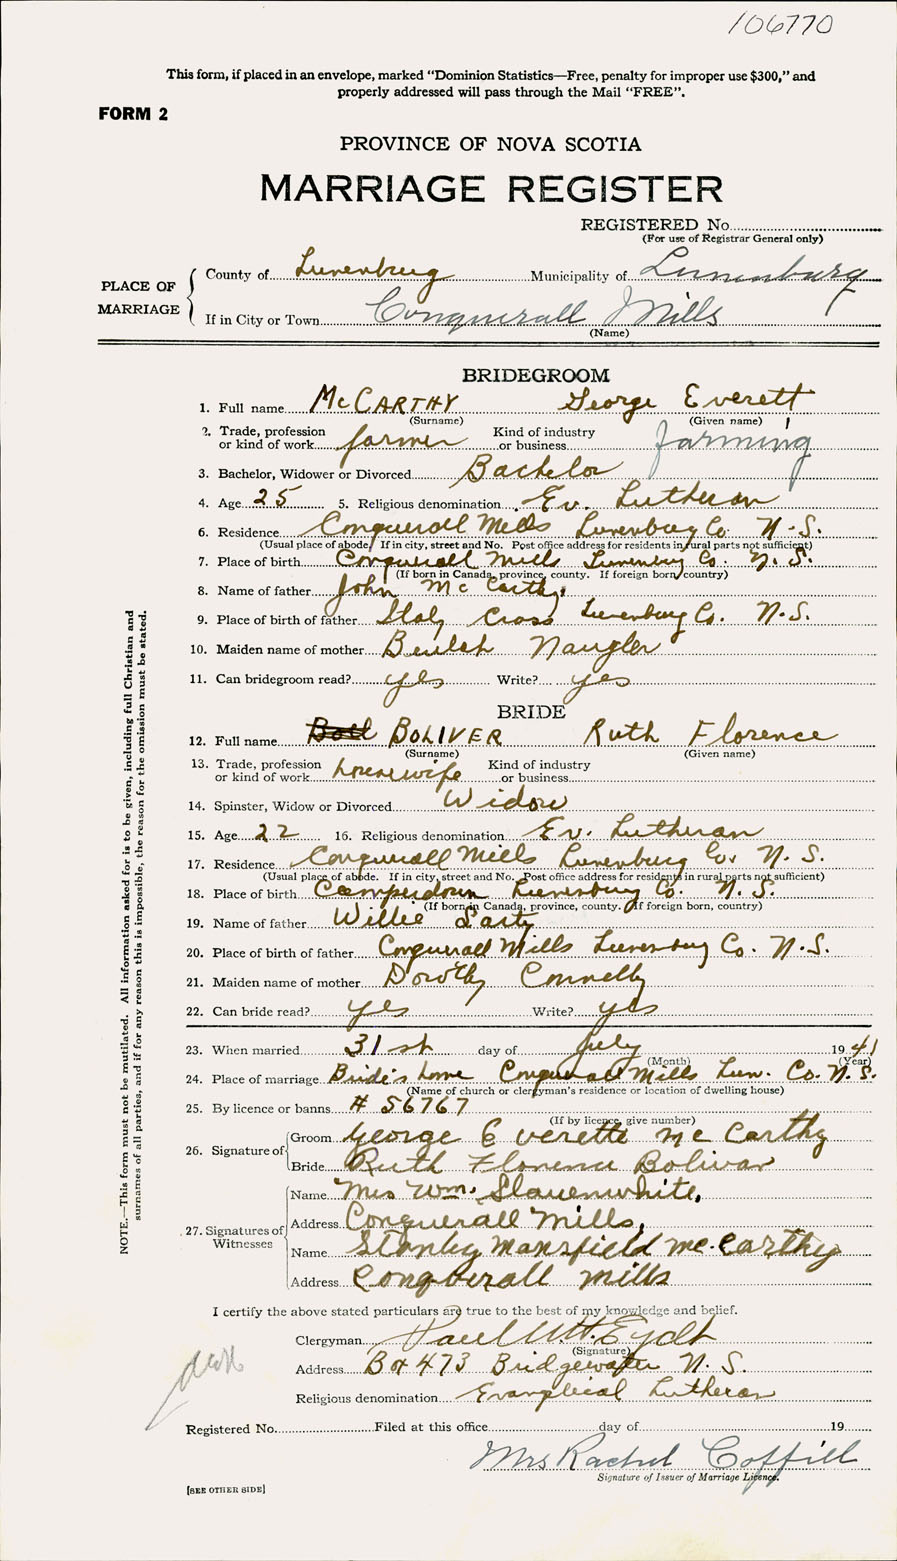 106770
This form, if placed in an envelope, marked “Dominion Statistics—Free, penalty for improper use $300,” and
properly addressed will pass through the Mail “FREE”.
FORM 2
PROVINCE OF NOVA SCOTIA
MARRIAGE REGISTER
REGISTERED No.
(For use of Registrar General only)
PLACE OF MARRIAGE
County of Lunenburg Municipality of Lunenburg
If in City or Town Conquerall Mills
(Name)
BRIDEGROOM
1. Full name McCARTHY George Everett
(Surname) (Given name)
2. Trade, profession or kind of work farmer Kind of industry or business farming
3. Bachelor, Widower or Divorced Bachelor
4. Age 25 5. Religious denomination Ev. Lutheran
6. Residence Conquerall Mills Lunenburg Co. N.S.
(Usual place of abode. If in city, street and No. Post office address for residents in rural parts not sufficient)
7. Place of birth Conquerall Mills Lunenburg Co. N.S.
(If born in Canada, province, county. If foreign born, country)
8. Name of father John McCarthy
9. Place of birth of father Italy Cross Lunenburg Co. N.S.
10. Maiden name of mother Beulah Naugler
11. Can bridegroom read? yes Write? yes
BRIDE
12. Full name BOLIVER Ruth Florence
(Surname) (Given name)
13. Trade, profession or kind of work housewife Kind of industry or business
14. Spinster, Widow or Divorced Widow
15. Age 22 16. Religious denomination Ev. Lutheran
17. Residence Conquerall Mills Lunenburg Co. N.S.
(Usual place of abode. If in city, street and No. Post office address for residents in rural parts not sufficient)
18. Place of birth Camperdown Lunenburg Co. N.S.
(If born in Canada, province, county. If foreign born, country)
19. Name of father Willie
20. Place of birth of father Conquerall Mills Lunenburg Co. N.S.
21. Maiden name of mother Dorothy Connelly
22. Can bride read? yes Write? yes
23. When married 31st day of July 1941
(Month) (Year)
24. Place of marriage Bride's home Conquerall Mills Lun. Co. N.S.
(Name of church or clergyman's residence or location of dwelling house)
25. By licence or banns # 56767
(If by licence, give number)
26. Signature of
Groom George Everette McCarthy
Bride Ruth Florence Bolivar
27. Signatures of Witnesses
Name Mrs Wm. Slauenwhite,
Address Conquerall Mills,
Name Stanley Mansfield McCarthy
Address Conquerall Mills
I certify the above stated particulars are true to the best of my knowledge and belief.
Clergyman Paul W.H. Eydt
(Signature)
Address Box 473 Bridgewater N.S.
Religious denomination Evangelical Lutheran
Registered No. Filed at this office day of 19
Mrs Rachel Coffill
Signature of Issuer of Marriage Licence.
[SEE OTHER SIDE]
NOTE.—This form must not be mutilated. All information asked for is to be given, including full Christian and
surnames of all parties, and if for any reason this is impossible, the reason for the omission must be stated.